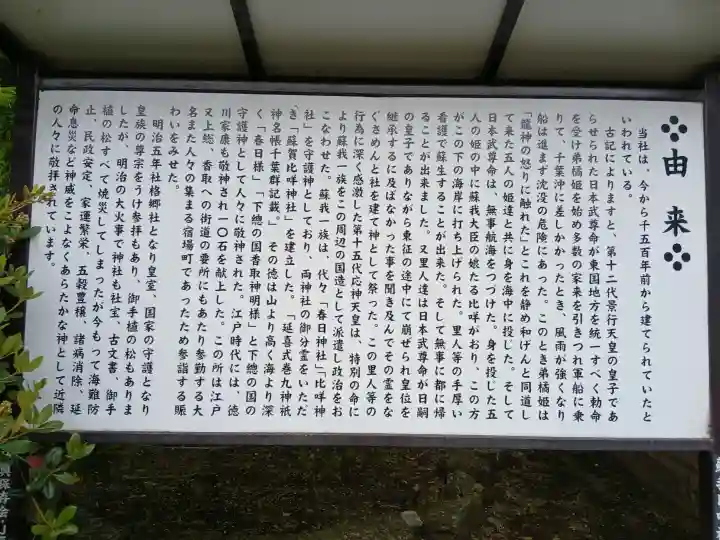 由来
当社は、今から千五百年前から建てられていたと
いわれている。
古記によりますと、第十二代景行天皇の皇子であ
らせられた日本武尊命が東国地方を統一すべく勅命
を受け弟橘姫を始め多数の家来を引きつれ軍船に乗
りて、千葉沖に差しかかったとき、風雨が強くなり
船は進まず沈没の危険にあった。このとき弟橘姫は
「龍神の怒りに触れた」とこれを静め和げんと同道し
て来た五人の姫達と共に身を海中に投じた。そして
日本武尊命は、無事航海をつづけた。身を投じた五
人の姫の中に蘇我大臣の娘たる比咩がおり、この方
がこの下の海岸に打ち上げられた。里人等の手厚い
看護で蘇生することが出来た。そして無事に都に帰
ることが出来ました。又里人達は日本武尊命が日嗣
の皇子でありながら東征の途中にて崩ぜられ皇位を
継承するに及ばなかった事を聞き及んでその霊をな
ぐさめんと社を建て神として祭った。この里人等の
行為に深く感激した第十五代応神天皇は、特別の命に
より蘇我一族をこの周辺の国造として派遣し政治をお
こなわせた。蘇我一族は、代々「春日神社」「比咩神
社」を守護神としており、両神社の御分霊をいただ
き「蘇賀比咩神社」を建立した。「延喜式巻九神祇
神名帳千葉郡記載。」その徳は山より高く海より深
く「春日様」「下総の国香取神明様」と下總の国の
守護神として人々に敬神された。江戸時代には、徳
川家康も敬神され一〇石を献上した。この所は江戸
又上総、香取への街道の要所にもあたり参勤する大
名また人々の集まる宿場町であったため参詣する賑
わいをみせた。
明治五年社格郷社となり皇室、国家の守護となり
皇族の尊宗をうけ参拝もあり、御手植の松もありま
したが、明治の大火事で神社も社宝、古文書、御手
植の松すべて焼災してしまったが今もって海難防
止、民政安定、家運繁栄、五穀豊穣、諸病消除、延
命息災など神威をこよなくあらたかな神として近隣
の人々に敬拝されています。